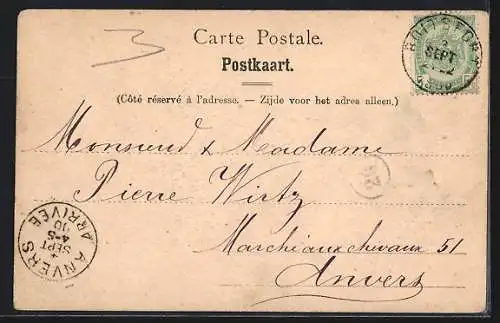 Carte Postale.
Postkaart.
(Côté réservé à l'adresse. — Zijde voor het adres alleen.)
Monsieur & Madame
Pierre Wirtz
Marché aux chevaux 51
Anvers
BOITSFORT
SEPT
ANVERS
SEPT
4-5
10
ARRIVÉE